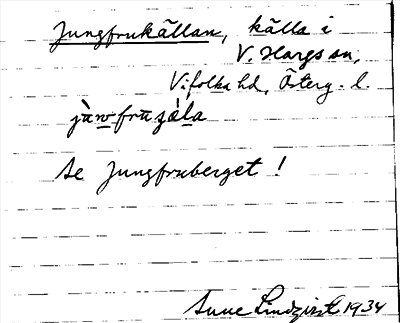 Jungfrukällan, källa i
V. Hargs sn,
Vifolka hd, Österg. l.
Se Jungfruberget!
Sune Lindqvist 1934